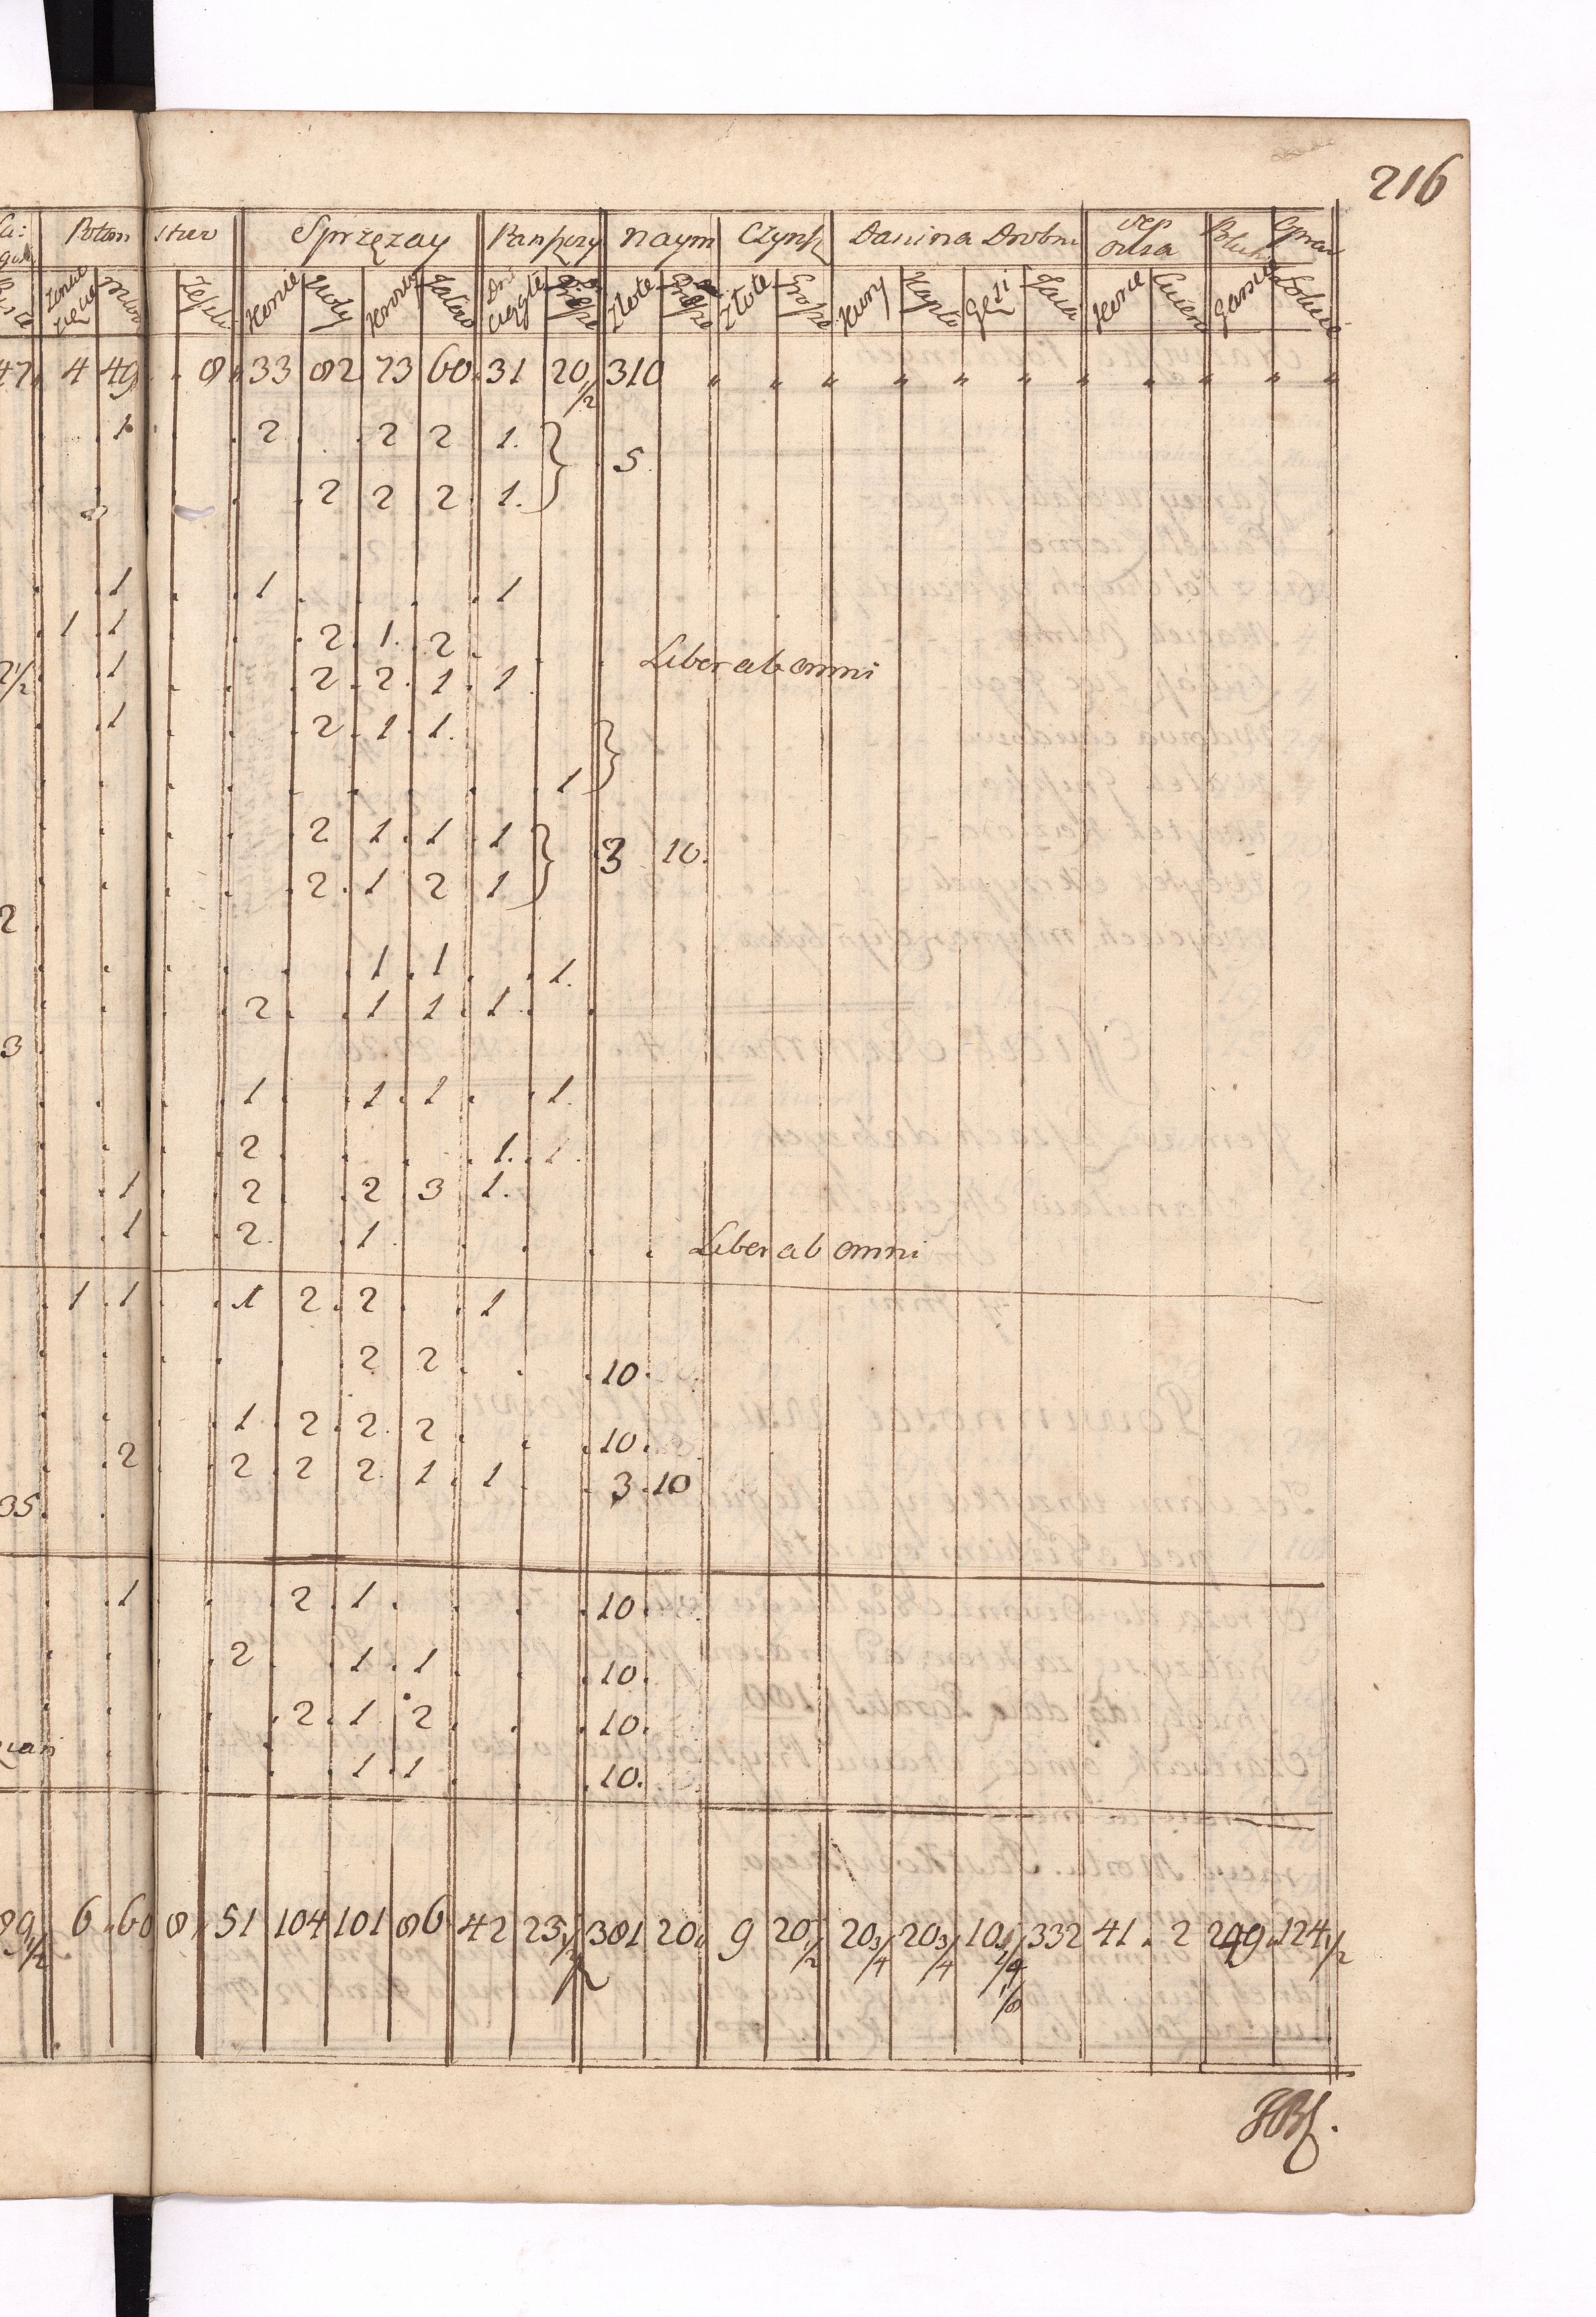 216
Potom stwo Sprzęzay Panszczy Naym Czynsz Danina Drobna Sep Owsa
Konie Woły Krowy Dni Ciągłe Złote Złote Grosze Kury Kapło Gęsi Jaia Korce
47 4 49 8 33 82 73 60 31 20 1/2 310
1 2 2 2 1
5
2 2 2 1
1 1 1
1 1 2 1 2 Liber ab omni
2 1/2 1 2 2 1 1
1 2 1 1
1
2 1 1 1
3 10
2 1 2 1
2
1 1 1
2 1 1 1
3
1 1 1 1
2 1 1
1 2 2 3 1
1 2 1 Liber ab omni
1 1 1 2 2 1
2 2 10
1 2 2 2 10
2 2 2 2 1 1 3 10
35
1 2 1 10
2 1 1 10
2 1 2 10
1 1 10
89 1/2 6 60 8 51 104 101 86 42 23 1/2 381 20 9 20 1/2 20 3/4 20 3/4 10 1/4 1/8 332 41 2 299 124 1/2